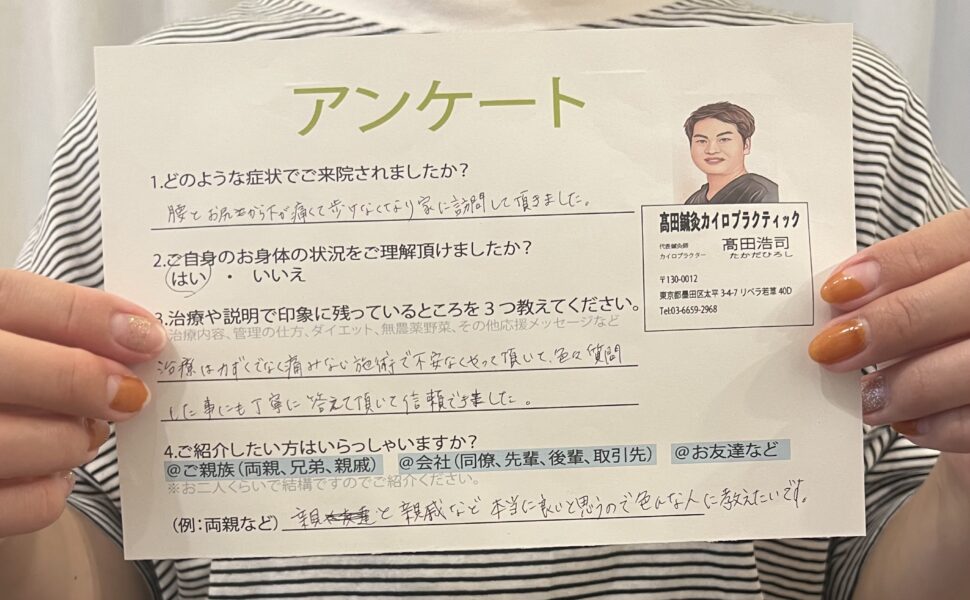 アンケート
1.どのような症状でご来院されましたか?
腰とお尻から下が痛くて歩けなくなり家に訪問して頂きました。
2.ご自身のお身体の状況をご理解頂けましたか?
はい ・ いいえ
3.治療や説明で印象に残っているところを3つ教えてください。
治療内容、管理の仕方、ダイエット、無農薬野菜、その他応援メッセージなど
治療は力ずくでなく痛みない施術で不安なくやって頂いて、色々質問
した事にも丁寧に答えて頂いて信頼できました。
4.ご紹介したい方はいらっしゃいますか?
@ご親族(両親、兄弟、親戚) @会社(同僚、先輩、後輩、取引先) @お友達など
※お二人くらいで結構ですのでご紹介ください。
(例:両親など) 親と親戚など本当に良いと思うので色んな人に教えたいです。
髙田鍼灸カイロプラクティック
代表鍼灸師
カイロプラクター
髙田浩司
たかだひろし
〒130-0012
東京都墨田区太平 3-4-7 リベラ若葦 40D
Tel:03-6659-2968